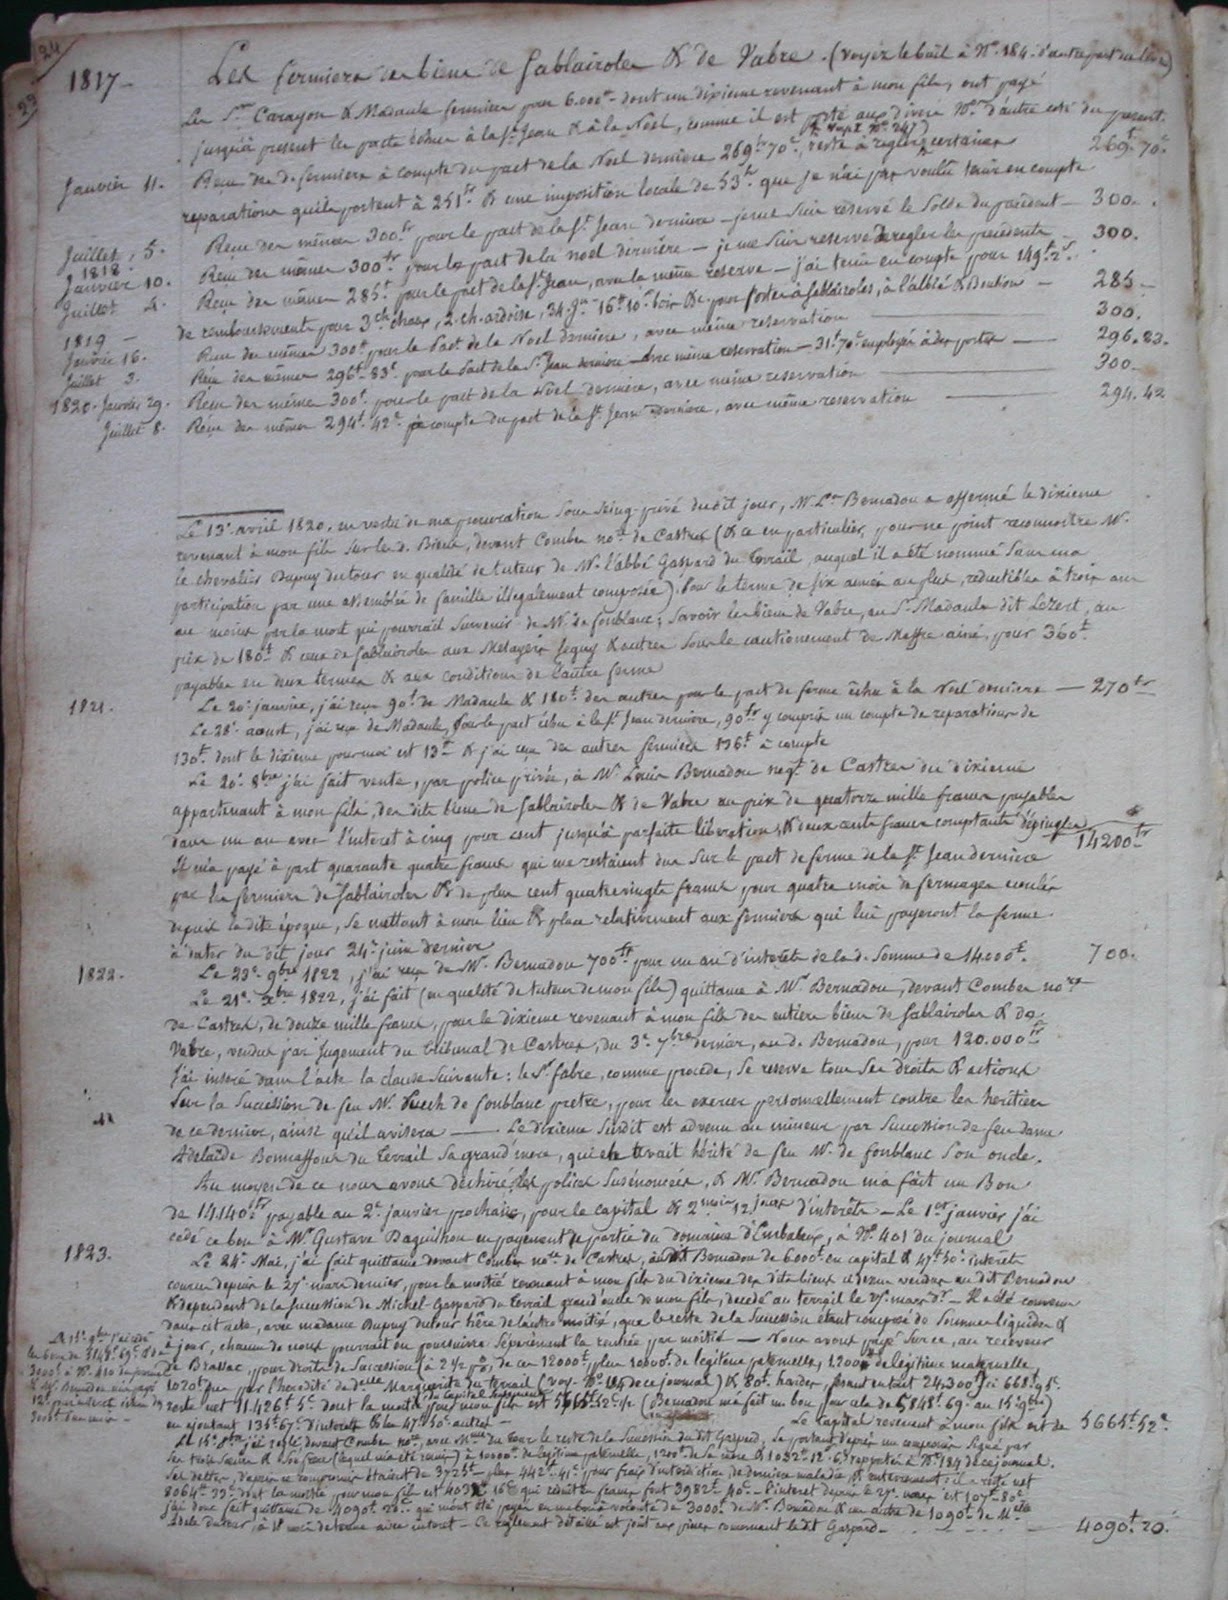 24
23
1817 - Les fermiers des biens de Sablairoles & de Vabre. (voyez le bail à N°. 184. d'autre part du livre)
Les Srs. Carayon & Madaule fermiers pour 6.000tt dont un dixieme revenant à mon fils, ont payé
jusqu'à present les pactes échus à la St. Jean & à la Noël, comme il est porté aux divers Nos. d'autre coté du present.
Janvier 11. Reçu des d. fermiers à compte du pact de la Noël derniere 269tt 70c, reste à regler certaines 269t. 70c.
reparations qu'ils portent à 251tt & une imposition locale de 53tt que je n'ai pas voulu tenir en compte
Juillet, 5. Reçu des mêmes 300tt pour le pact de la St. Jean derniere - je me suis reservé le solde du précedent - 300.
1818. Janvier 10. Reçu des mêmes 300tt pour le pact de la noël derniere - je me suis reservé de regler les précedents - 300.
Juillet 4. Reçu des mêmes 285t pour le pact de la St. Jean, avec la même reserve - j'ai tenu en compte pour 149t. 2s. 285 -
de remboursements pour 3 ch. chaux, 2. ch. ardoise, 34. Jn. 16tt 10s bois &c. pour porter à Sablairoles, à l'albié & Boution -
1819 - Janvier 16. Reçu des mêmes 300t pour le Pact de la Noël derniere, avec même reservation 300.
Juillet 3. Reçu des mêmes 296t. 83c. pour le Pact de la St. Jean derniere avec même reservation - 31t 70c employés à des portes 296.83.
1820. Janvier 29. Reçu des mêmes 300t. pour le pact de la Noël derniere, avec même reservation 300.
Juillet 8. Reçu des mêmes 294t. 42c à compte du pact de la St. Jean derniere, avec même reservation 294.42
Le 13e. avril 1820. en vertu de ma procuration sous seing-privé dudit jour, Mr. Ls. Bernadou a affermé le dixieme
revenant à mon fils sur les d. Biens, devant Combes nore. de Castres (& ce en particulier, pour ne point reconnoitre Mr.
le chevalier Dupuy dutour en qualité de tuteur de Mr. l'abbé Gaspard du Terrail, auquel il a été nommé sans ma
participation par une assemblée de famille illegalement composée). Pour le terme de six années au plus, reductibles à trois ans
au moins par la mort qui pourrait survenir de Mr. de fonblanc; Savoir les biens de Vabre, au Sr. Madaule dit Lezert, au
prix de 180t & ceux de Sablairoles aux Metayers Seguy & autres sous le cautionement de Maffre ainé, pour 360t
payables en deux termes & aux conditions de l'autre ferme
1821. Le 20e. janvier, j'ai reçu 90t de Madaule & 180t des autres pour le pact de ferme échu à la Noël derniere - 270tt
Le 28e. aoust, j'ai reçu de Madaule, pour le pact échu à la St. Jean derniere, 90tt y compris un compte de reparations de
130t. dont le dixieme pour moi est 13tt & j'ai reçu des autres fermiers 136t. à compte
Le 20e. 8bre j'ai fait vente, par police privée, à Mr. Louis Bernadou negt. de Castres du dixieme
appartenant à mon fils, des dits biens de Sablairoles & de Vabre au prix de quatorze mille francs payables
dans un an avec l'interet à cinq pour cent jusqu'à parfaite liberation, & deux cents francs comptants d'épingles 14200tt
Il m'a payé à part quarante quatre francs qui me restaient dus sur le pact de ferme de la St. Jean derniere
par les fermiers de Sablairoles & de plus cent quatrevingts francs pour quatre mois de fermages écoulés
depuis ladite époque, se mettant à mon lieu & place relativement aux fermiers qui lui payeront la ferme
à dater du dit jour 24e. juin dernier
1822. Le 23e. 9bre 1822, j'ai reçu de Mr. Bernadou 700tt pour un an d'interets de la d. Somme de 14000t. 700.
Le 21e. xbre 1822, j'ai fait (en qualité de tuteur de mon fils) quittance à Mr. Bernadou, devant Combes nore
de Castres, de douze mille francs, pour le dixieme revenant à mon fils des entiers biens de Sablairoles & de
Vabre, vendus par Jugement du tribunal de Castres, du 3e. 7bre dernier, au d. Bernadou, pour 120.000tt
J'ai inseré dans l'acte la clause suivante: le Sr. fabre, comme procede, se reserve tous ses droits & actions
sur la Succession de feu Mr. Puech de fonblanc pretre, pour les exercer personnellement contre les heritiers
de ce dernier, ainsi qu'il avisera - Le dixieme susdit est advenu au mineur par succession de feu dame
Adelaïde Bonnaffous du Terrail sa grand'mere, qui en avait hérité de feu Mr. de fonblanc son oncle.
Au moyen de ce nous avons déchiré les polices susénoncées, & Mr. Bernadou m'a fait un Bon
de 14140tt payable au 2e. janvier prochain, pour le capital & 2 mois 12 jours d'interêts - Le 1er janvier j'ai
cedé ce bon à Mr. Gustave Daguilhou en payement de partie du domaine d'Embateux, à N°. 401 du journal
1823. Le 24e. Mai, j'ai fait quittance devant Combes nore de Castres, audit Bernadou de 6000t. en capital & 47t. 50c. interêts
courus depuis le 27e. mars dernier, pour la moitié revenant à mon fils du dixieme des dits biens ci dessus vendus au dit Bernadou
& dependant de la succession de Michel-Gaspard du Terrail grand'oncle de mon fils, decedé au terrail le 27. mars dr. - Il a été convenu
dans cet acte, avec madame Dupuy dutour hére. de l'autre moitié, que le reste de la Succession etant composé de sommes liquides &
à jour, chacun de nous pourrait en poursuivre séparément la rentrée par moitié - Nous avons payé sur ce, au receveur
de Brassac, pour droits de Succession (à 2 1/2 p%, de ces 12000t, plus 10000t. de legitime paternelle, 1200t de legitime maternelle,
1020t dus par l'heredité de delle Marguerite du terrail (voy. N°. 184 de ce journal) & 80t. hardes, formant en tout 24,300t) ci 668t. 95c.
reste net 11.426t. 5c. dont la moitié du capital pour mon fils est 5665t. 52c. 1/2 (Bernadou m'a fait un bon pour cela de 5848t. 69c. au 15e. 9bre)
en ajoutant 135t. 67c. d'interets & les 47t. 50c. autres - Le Capital revenant à mon fils est de 5665t. 52c.
Le 15e. 9bre j'ai cedé
ce bon de
à N°. 410 du journal
& Mr. Bernadou m'a payé
Le 15e. 8bre j'ai reglé devant Combes nore, avec Mme. du Tour le reste de la Succession dudit Gaspard, se portant d'après un compromis signé par
ses trois Sœurs & son frere (lequel m'a été remis) à 10000t. de legitime paternelle, 1200t. de sa mere & 1032t. 12s. 6d. reportés à N°. 184 de ce journal.
Ses dettes, d'après ce compromis étaient de 3725t. - plus 442t. 41c. pour frais d'interdiction, de derniere maladie & enterrement: il a resté net
8064t. 32c. dont la moitié pour mon fils est 4032t. 16c. qui reduits en francs font 3982t. 40c. - l'interet depuis le 27e. mars est 107t. 80c.
j'ai donc fait quittance de 4090t. 20c. qui m'ont été payés en un bon à volonté de 3000t. de Mr. Bernadou & un autre de 1090t. de Melle
Adele Dutour, à 18 mois de terme avec interet - Ce reglement détaillé est joint aux pieces concernant ledit Gaspard - 4090t. 20c.